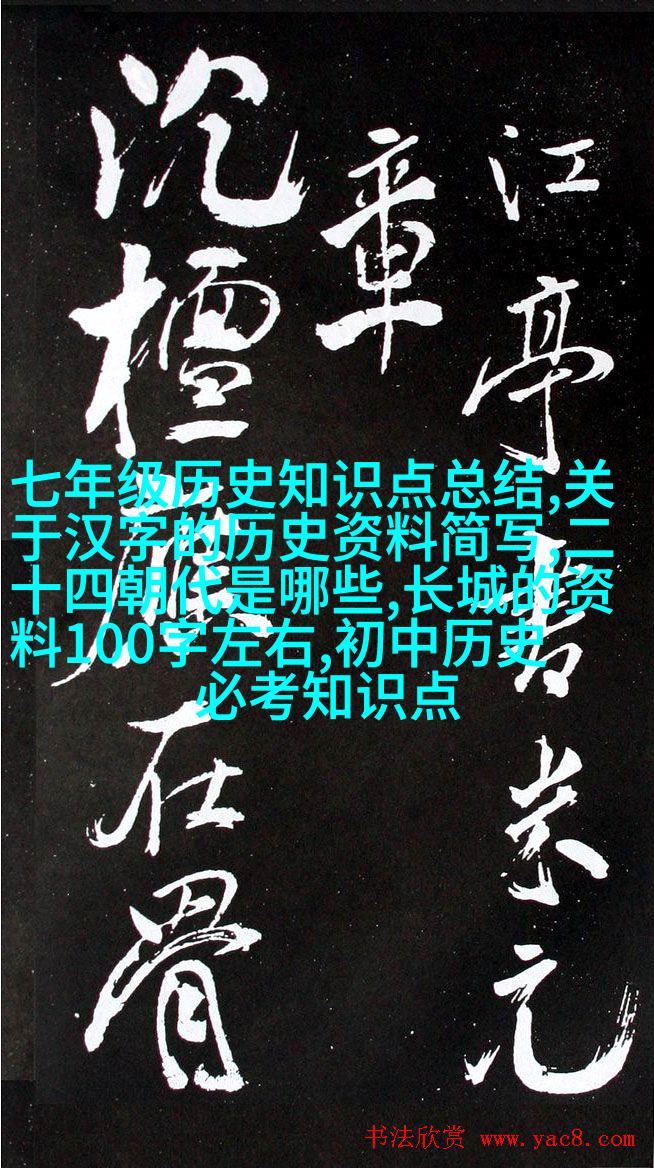 江亭米元
章
沉檀在骨
七年级历史知识点总结,关
于汉字的历史资料简写,二
十四朝代是哪些,长城的资
料100字左右,初中历史
必考知识点
书法欣赏 www.yac8.com